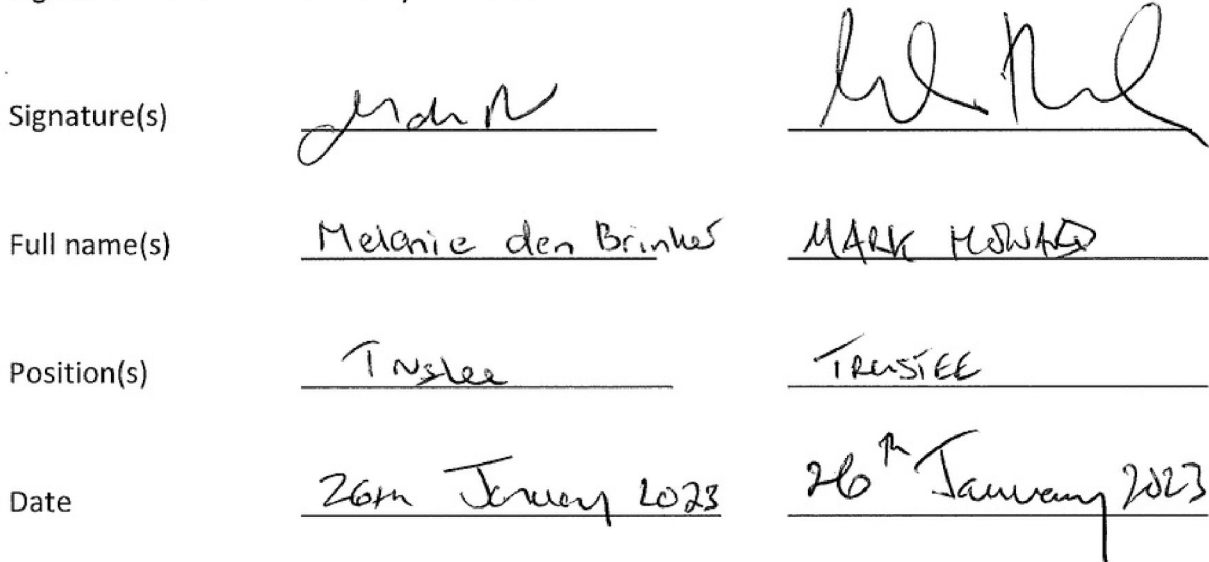 Signature(s)
Full name(s) Melanie den Brinker MARK HOWARD
Position(s) Trustee TRUSTEE
Date 26th January 2023 26th January 2023